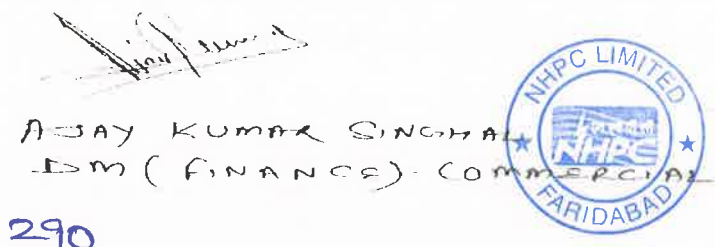 AJAY KUMAR SINGHAL
DM (FINANCE) COMMERCIAL
NHPC LIMITED
NHPC
★ FARIDABAD ★
290